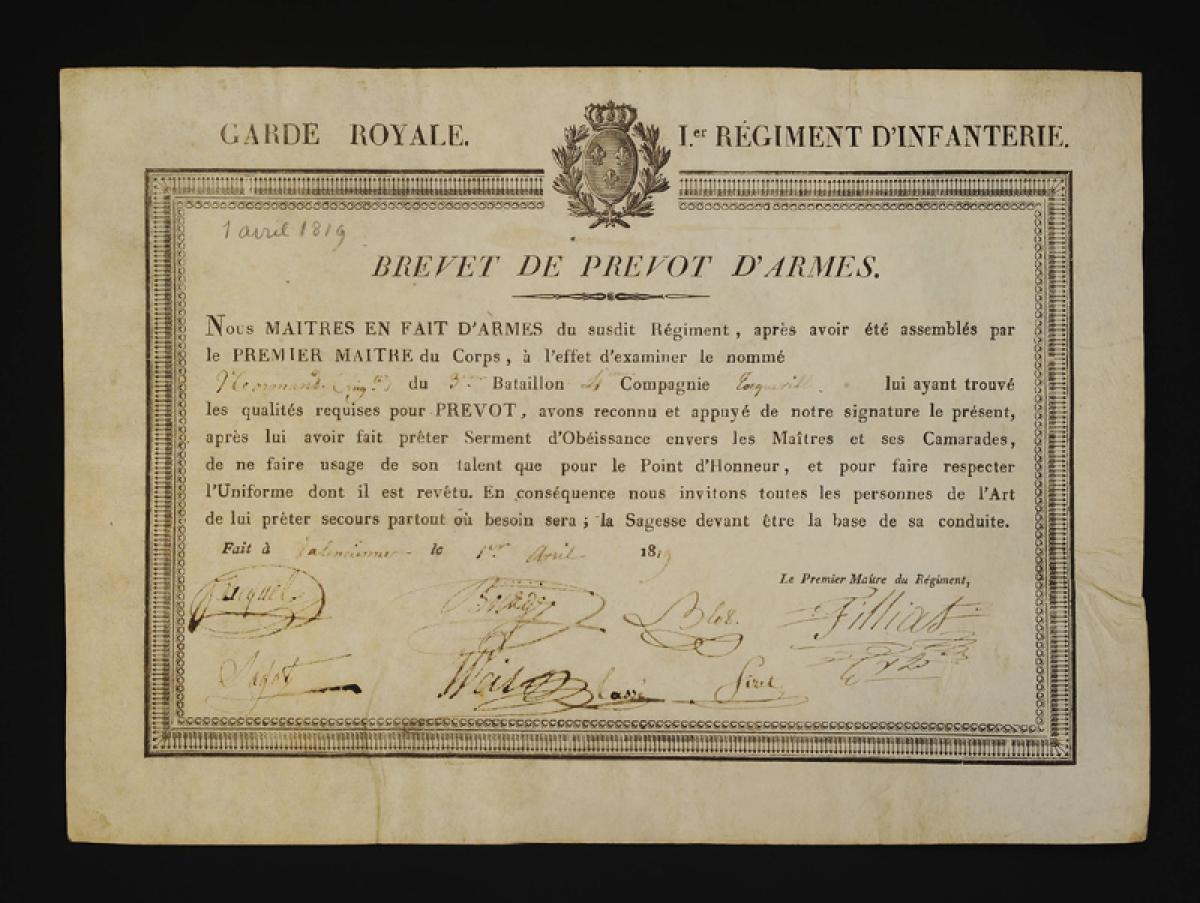 GARDE ROYALE. I.er RÉGIMENT D'INFANTERIE.
1 avril 1819
BREVET DE PREVOT D'ARMES.
Nous MAITRES EN FAIT D'ARMES du susdit Régiment, après avoir été assemblés par
le PREMIER MAITRE du Corps, à l'effet d'examiner le nommé
du 3me Bataillon 4me Compagnie lui ayant trouvé
les qualités requises pour PREVOT, avons reconnu et appuyé de notre signature le présent,
après lui avoir fait prêter Serment d'Obéissance envers les Maîtres et ses Camarades,
de ne faire usage de son talent que pour le Point d'Honneur, et pour faire respecter
l'Uniforme dont il est revêtu. En conséquence nous invitons toutes les personnes de l'Art
de lui prêter secours partout où besoin sera ; la Sagesse devant être la base de sa conduite.
Fait à Valenciennes le 1er Avril 1819
Le Premier Maître du Régiment,
Filliat
Sagot